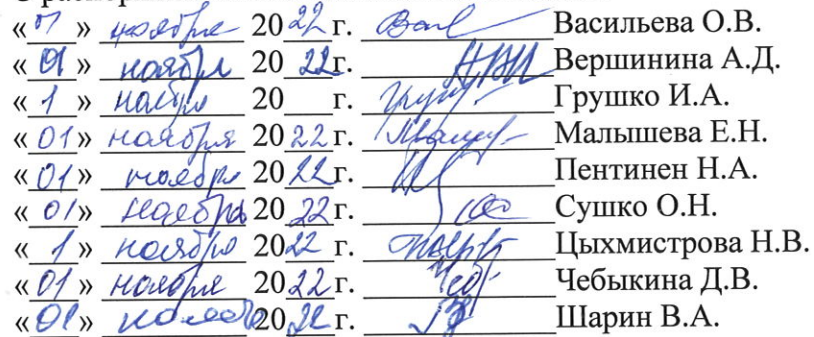 « 01 » ноября 2022 г. Васильева О.В.
« 01 » ноября 20 22г. Вершинина А.Д.
« 1 » ноября 20 г. Грушко И.А.
« 01 » ноября 20 22 г. Малышева Е.Н.
« 01 » ноября 20 22г. Пентинен Н.А.
« 01 » ноября 20 22 г. Сушко О.Н.
« 1 » ноября 20 22 г. Цыхмистрова Н.В.
« 01 » ноября 20 22 г. Чебыкина Д.В.
« 01 » ноября 20 22 г. Шарин В.А.